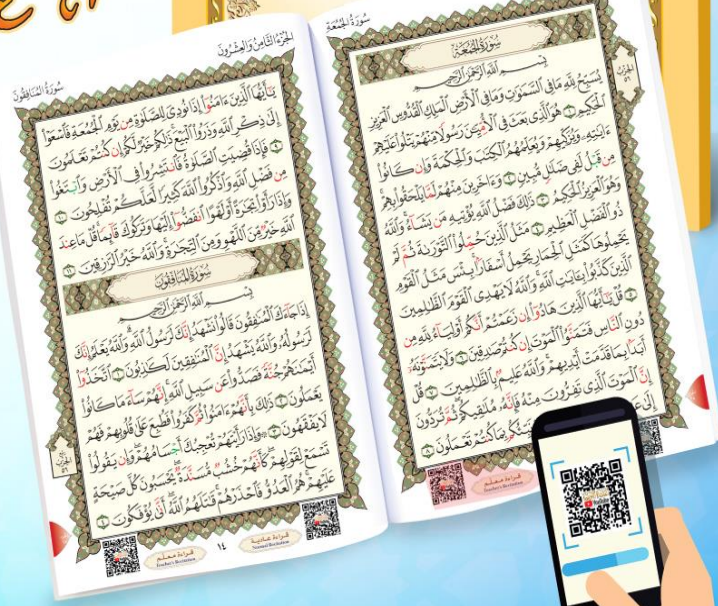 سُورَةُ الجُمُعَةِ
سُورَةُ الجُمُعَةِ
الحِزْب
بِسْمِ ٱللَّهِ ٱلرَّحْمَٰنِ ٱلرَّحِيمِ
يُسَبِّحُ لِلَّهِ مَا فِي ٱلسَّمَٰوَٰتِ وَمَا فِي ٱلْأَرْضِ ٱلْمَلِكِ ٱلْقُدُّوسِ ٱلْعَزِيزِ
ٱلْحَكِيمِ ١ هُوَ ٱلَّذِي بَعَثَ فِي ٱلْأُمِّيِّـۧنَ رَسُولًا مِّنْهُمْ يَتْلُوا۟ عَلَيْهِمْ
ءَايَٰتِهِۦ وَيُزَكِّيهِمْ وَيُعَلِّمُهُمُ ٱلْكِتَٰبَ وَٱلْحِكْمَةَ وَإِن كَانُوا۟
مِن قَبْلُ لَفِي ضَلَٰلٍ مُّبِينٍ ٢ وَءَاخَرِينَ مِنْهُمْ لَمَّا يَلْحَقُوا۟ بِهِمْ
وَهُوَ ٱلْعَزِيزُ ٱلْحَكِيمُ ٣ ذَٰلِكَ فَضْلُ ٱللَّهِ يُؤْتِيهِ مَن يَشَآءُ وَٱللَّهُ
ذُو ٱلْفَضْلِ ٱلْعَظِيمِ ٤ مَثَلُ ٱلَّذِينَ حُمِّلُوا۟ ٱلتَّوْرَىٰةَ ثُمَّ لَمْ
يَحْمِلُوهَا كَمَثَلِ ٱلْحِمَارِ يَحْمِلُ أَسْفَارًا بِئْسَ مَثَلُ ٱلْقَوْمِ
ٱلَّذِينَ كَذَّبُوا۟ بِـَٔايَٰتِ ٱللَّهِ وَٱللَّهُ لَا يَهْدِي ٱلْقَوْمَ ٱلظَّٰلِمِينَ
٥ قُلْ يَٰٓأَيُّهَا ٱلَّذِينَ هَادُوٓا۟ إِن زَعَمْتُمْ أَنَّكُمْ أَوْلِيَآءُ لِلَّهِ مِن
دُونِ ٱلنَّاسِ فَتَمَنَّوُا۟ ٱلْمَوْتَ إِن كُنتُمْ صَٰدِقِينَ ٦ وَلَا يَتَمَنَّوْنَهُۥٓ
أَبَدًۢا بِمَا قَدَّمَتْ أَيْدِيهِمْ وَٱللَّهُ عَلِيمٌۢ بِٱلظَّٰلِمِينَ ٧ قُلْ
إِنَّ ٱلْمَوْتَ ٱلَّذِي تَفِرُّونَ مِنْهُ فَإِنَّهُۥ مُلَٰقِيكُمْ ثُمَّ تُرَدُّونَ
إِلَىٰ بِمَا كُنتُمْ تَعْمَلُونَ ٨
قراءة معلم
Teacher's Recitation
الجُزْءُ الثَّامِنُ وَالعِشْرُونَ
سُورَةُ المُنَافِقُونَ
يَٰٓأَيُّهَا ٱلَّذِينَ ءَامَنُوٓا۟ إِذَا نُودِيَ لِلصَّلَوٰةِ مِن يَوْمِ ٱلْجُمُعَةِ فَٱسْعَوْا۟
إِلَىٰ ذِكْرِ ٱللَّهِ وَذَرُوا۟ ٱلْبَيْعَ ذَٰلِكُمْ خَيْرٌ لَّكُمْ إِن كُنتُمْ تَعْلَمُونَ
٩ فَإِذَا قُضِيَتِ ٱلصَّلَوٰةُ فَٱنتَشِرُوا۟ فِي ٱلْأَرْضِ وَٱبْتَغُوا۟
مِن فَضْلِ ٱللَّهِ وَٱذْكُرُوا۟ ٱللَّهَ كَثِيرًا لَّعَلَّكُمْ تُفْلِحُونَ ١٠
وَإِذَا رَأَوْا۟ تِجَٰرَةً أَوْ لَهْوًا ٱنفَضُّوٓا۟ إِلَيْهَا وَتَرَكُوكَ قَآئِمًا قُلْ مَا عِندَ
ٱللَّهِ خَيْرٌ مِّنَ ٱللَّهْوِ وَمِنَ ٱلتِّجَٰرَةِ وَٱللَّهُ خَيْرُ ٱلرَّٰزِقِينَ ١١
سُورَةُ المُنَافِقُونَ
بِسْمِ ٱللَّهِ ٱلرَّحْمَٰنِ ٱلرَّحِيمِ
إِذَا جَآءَكَ ٱلْمُنَٰفِقُونَ قَالُوا۟ نَشْهَدُ إِنَّكَ لَرَسُولُ ٱللَّهِ وَٱللَّهُ يَعْلَمُ إِنَّكَ
لَرَسُولُهُۥ وَٱللَّهُ يَشْهَدُ إِنَّ ٱلْمُنَٰفِقِينَ لَكَٰذِبُونَ ١ ٱتَّخَذُوٓا۟
أَيْمَٰنَهُمْ جُنَّةً فَصَدُّوا۟ عَن سَبِيلِ ٱللَّهِ إِنَّهُمْ سَآءَ مَا كَانُوا۟
يَعْمَلُونَ ٢ ذَٰلِكَ بِأَنَّهُمْ ءَامَنُوا۟ ثُمَّ كَفَرُوا۟ فَطُبِعَ عَلَىٰ قُلُوبِهِمْ فَهُمْ
لَا يَفْقَهُونَ ٣ وَإِذَا رَأَيْتَهُمْ تُعْجِبُكَ أَجْسَامُهُمْ وَإِن يَقُولُوا۟
تَسْمَعْ لِقَوْلِهِمْ كَأَنَّهُمْ خُشُبٌ مُّسَنَّدَةٌ يَحْسَبُونَ كُلَّ صَيْحَةٍ
عَلَيْهِمْ هُمُ ٱلْعَدُوُّ فَٱحْذَرْهُمْ قَٰتَلَهُمُ ٱللَّهُ أَنَّىٰ يُؤْفَكُونَ ٤
الحِزْب
قراءة عادية
Normal Recitation
١٤
قراءة معلم
Teacher's Recitation